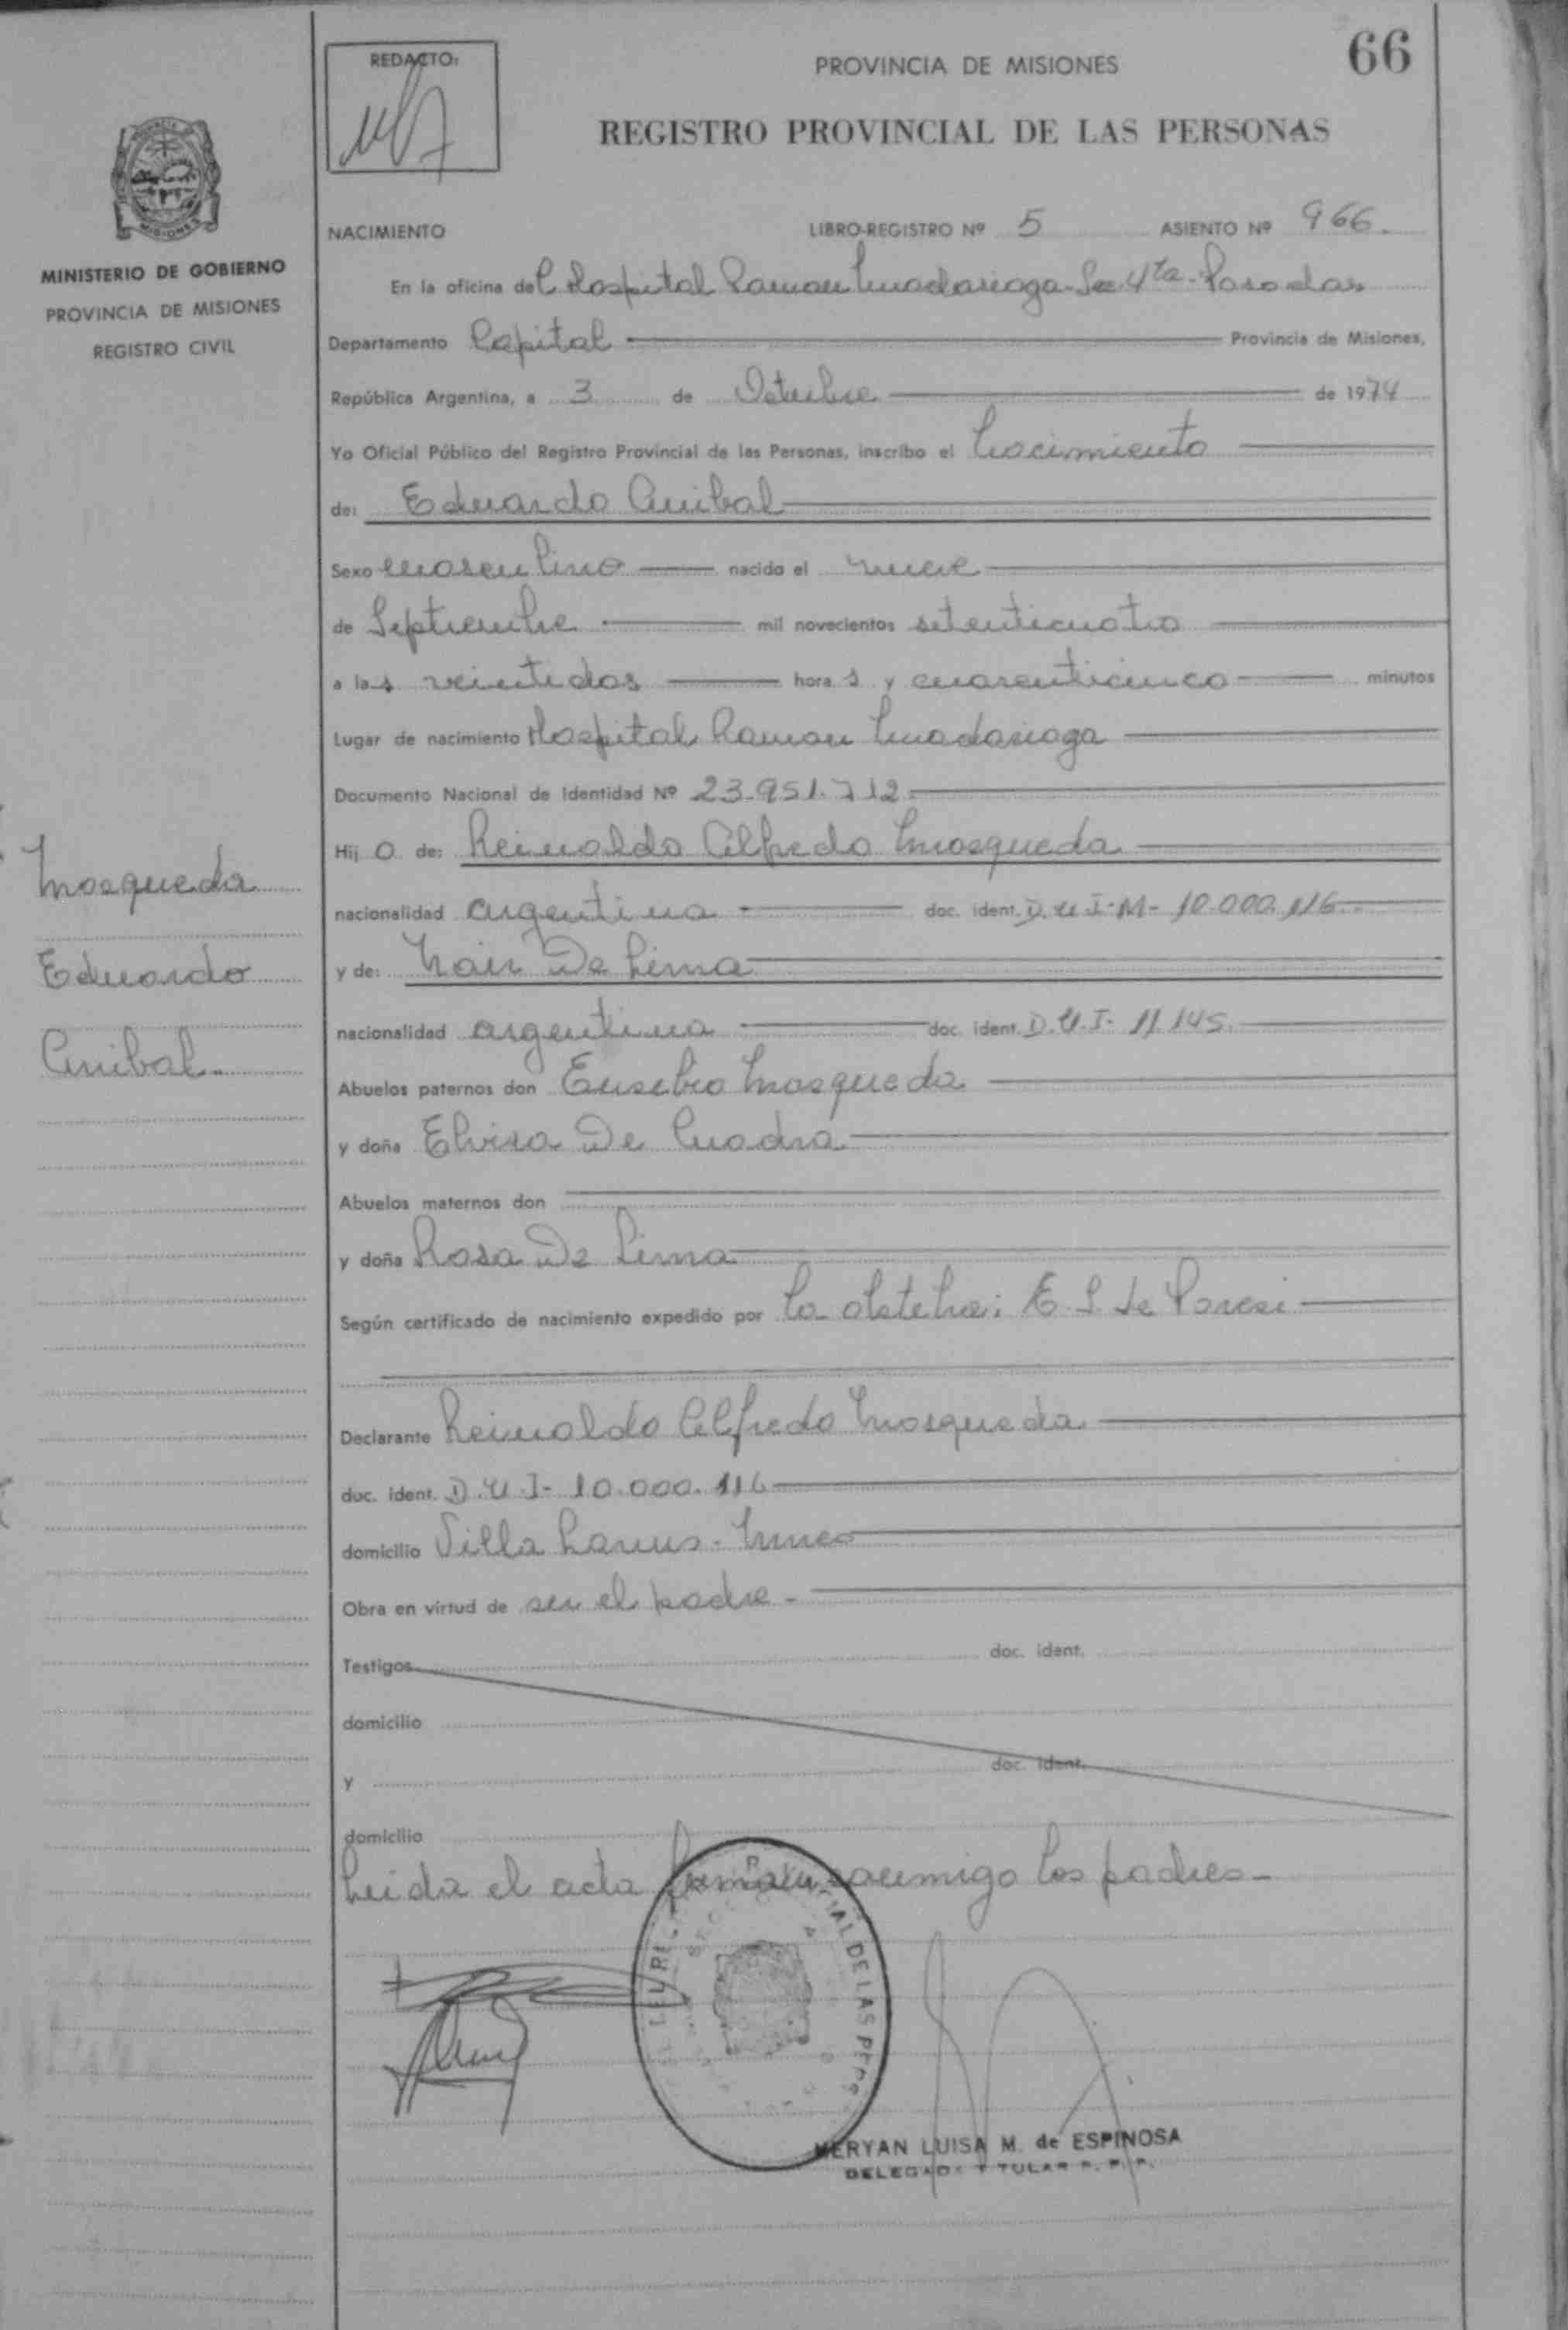 66
REDACTO:
PROVINCIA DE MISIONES
REGISTRO PROVINCIAL DE LAS PERSONAS
MINISTERIO DE GOBIERNO
PROVINCIA DE MISIONES
REGISTRO CIVIL
NACIMIENTO LIBRO-REGISTRO Nº 5 ASIENTO Nº 966.
En la oficina del Hospital Ramon Madariaga-Sec 4ta-Posadas
Departamento Capital Provincia de Misiones,
República Argentina, a 3 de Octubre de 1974
Yo Oficial Público del Registro Provincial de las Personas, inscribo el Nacimiento
de: Eduardo Anibal
Sexo masculino nacido el nueve
de Septiembre mil novecientos setenticuatro
a las veintidos horas y cuarenticinco minutos
Lugar de nacimiento Hospital Ramon Madariaga
Documento Nacional de Identidad Nº 23.951.712
Hijo de: Reinaldo Alfredo Mosqueda
nacionalidad argentina doc. ident. D.U.I-M- 10.000.116
y de: Nair De Lima
nacionalidad argentina doc. ident. D.U.I- 11.145.
Abuelos paternos don Eusebio Mosqueda
y doña Elvira De Cuadra
Abuelos maternos don
y doña Rosa De Lima
Según certificado de nacimiento expedido por la obstetra: E. S. de
Declarante Reinaldo Alfredo Mosqueda
doc. ident. D.U.I- 10.000.116
domicilio Villa Lanus-
Obra en virtud de ser el padre-
Testigos doc. ident.
domicilio
y doc. ident.
domicilio
Leida el acta firman conmigo los padres-
Mosqueda
Eduardo
Anibal-
DEL REG PROVINCIAL DE LAS PERS
MERYAN LUISA M. de ESPINOSA
DELEGADA TITULAR R. P. P.